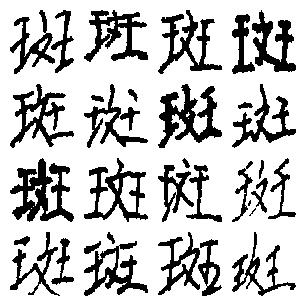 斑斑斑斑
斑斑斑斑
斑斑斑斑
斑斑斑斑